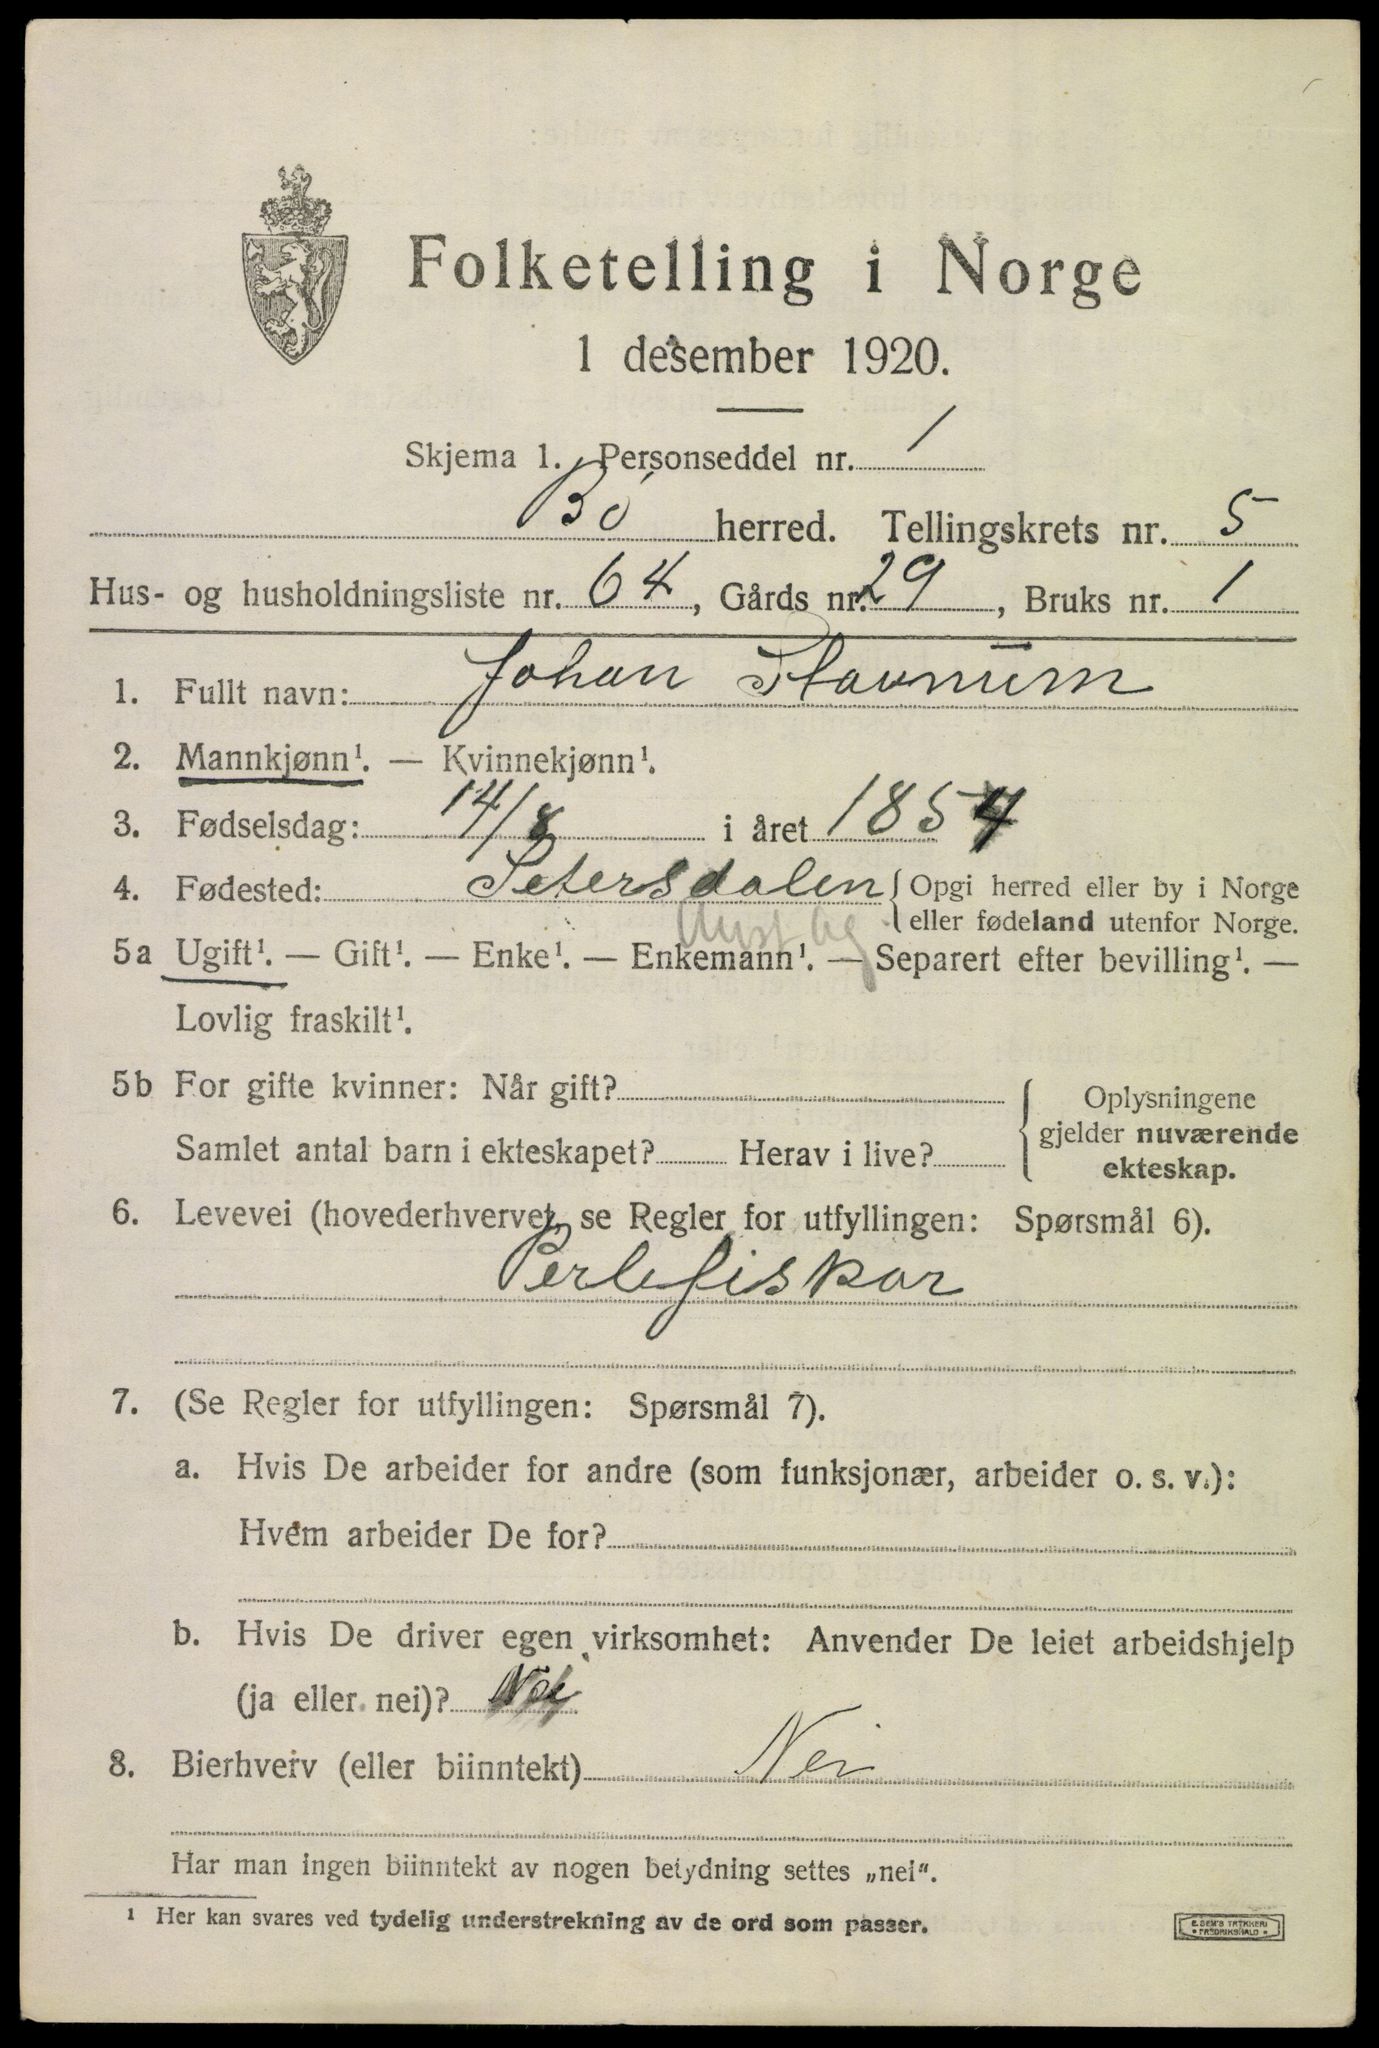 Folketelling i Norge
1 desember 1920.
Skjema 1. Personseddel nr. 1
Bö herred. Tellingskrets nr. 5
Hus- og husholdningsliste nr. 64, Gårds nr. 29, Bruks nr. 1
1. Fullt navn: Johan Stavnum
2. Mannkjønn¹. — Kvinnekjønn¹.
3. Fødselsdag: 14/8 i året 1854
4. Fødested: Setersdalen {Opgi herred eller by i Norge
eller fødeland utenfor Norge.
Aust Ag
5a Ugift¹. — Gift¹. — Enke¹. — Enkemann¹. — Separert efter bevilling¹. —
Lovlig fraskilt¹.
5b For gifte kvinner: Når gift?
Samlet antal barn i ekteskapet? Herav i live?
{ Oplysningene
gjelder nuværende
ekteskap.
6. Levevei (hovederhvervet, se Regler for utfyllingen: Spørsmål 6).
Perlefiskar
7. (Se Regler for utfyllingen: Spørsmål 7).
a. Hvis De arbeider for andre (som funksjonær, arbeider o. s. v.):
Hvem arbeider De for?
b. Hvis De driver egen virksomhet: Anvender De leiet arbeidshjelp
(ja eller nei)? Nei
8. Bierhverv (eller biinntekt) Nei
Har man ingen biinntekt av nogen betydning settes „nei“.
¹ Her kan svares ved tydelig understrekning av de ord som passer.
E. SEM'S TRYKKERI
FREDRIKSHALD